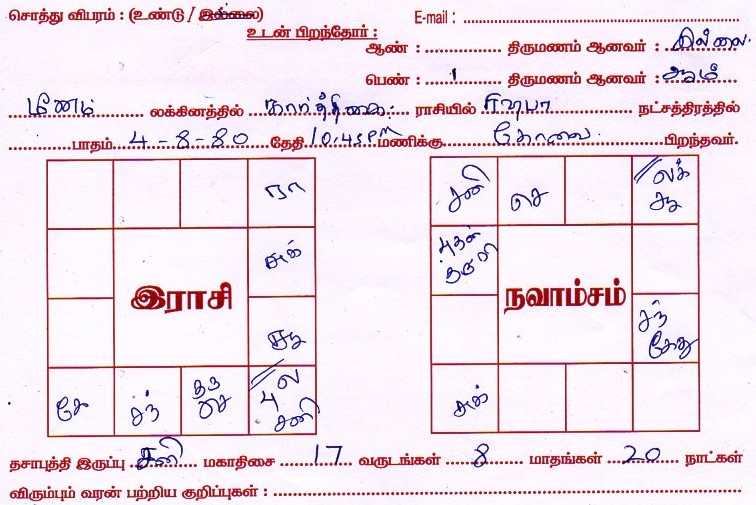 சொத்து விபரம் : (உண்டு / இல்லை) E-mail :
உடன் பிறந்தோர் :
ஆண் : திருமணம் ஆனவர் : இல்லை
பெண் : 1 திருமணம் ஆனவர் :
லக்கினத்தில் ராசியில் நட்சத்திரத்தில்
பாதம் 4-8-80 தேதி 10.45 PM மணிக்கு கோவை பிறந்தவர்.
ரா
சுக்
சூ
கே சந் குரு செ ல பு சனி
இராசி
சனி செ லக் சூ
புதன் குரு
சந் கேது
சுக்
நவாம்சம்
தசாபுத்தி இருப்பு சனி மகாதிசை 17 வருடங்கள் 8 மாதங்கள் 20 நாட்கள்
விரும்பும் வரன் பற்றிய குறிப்புகள் :